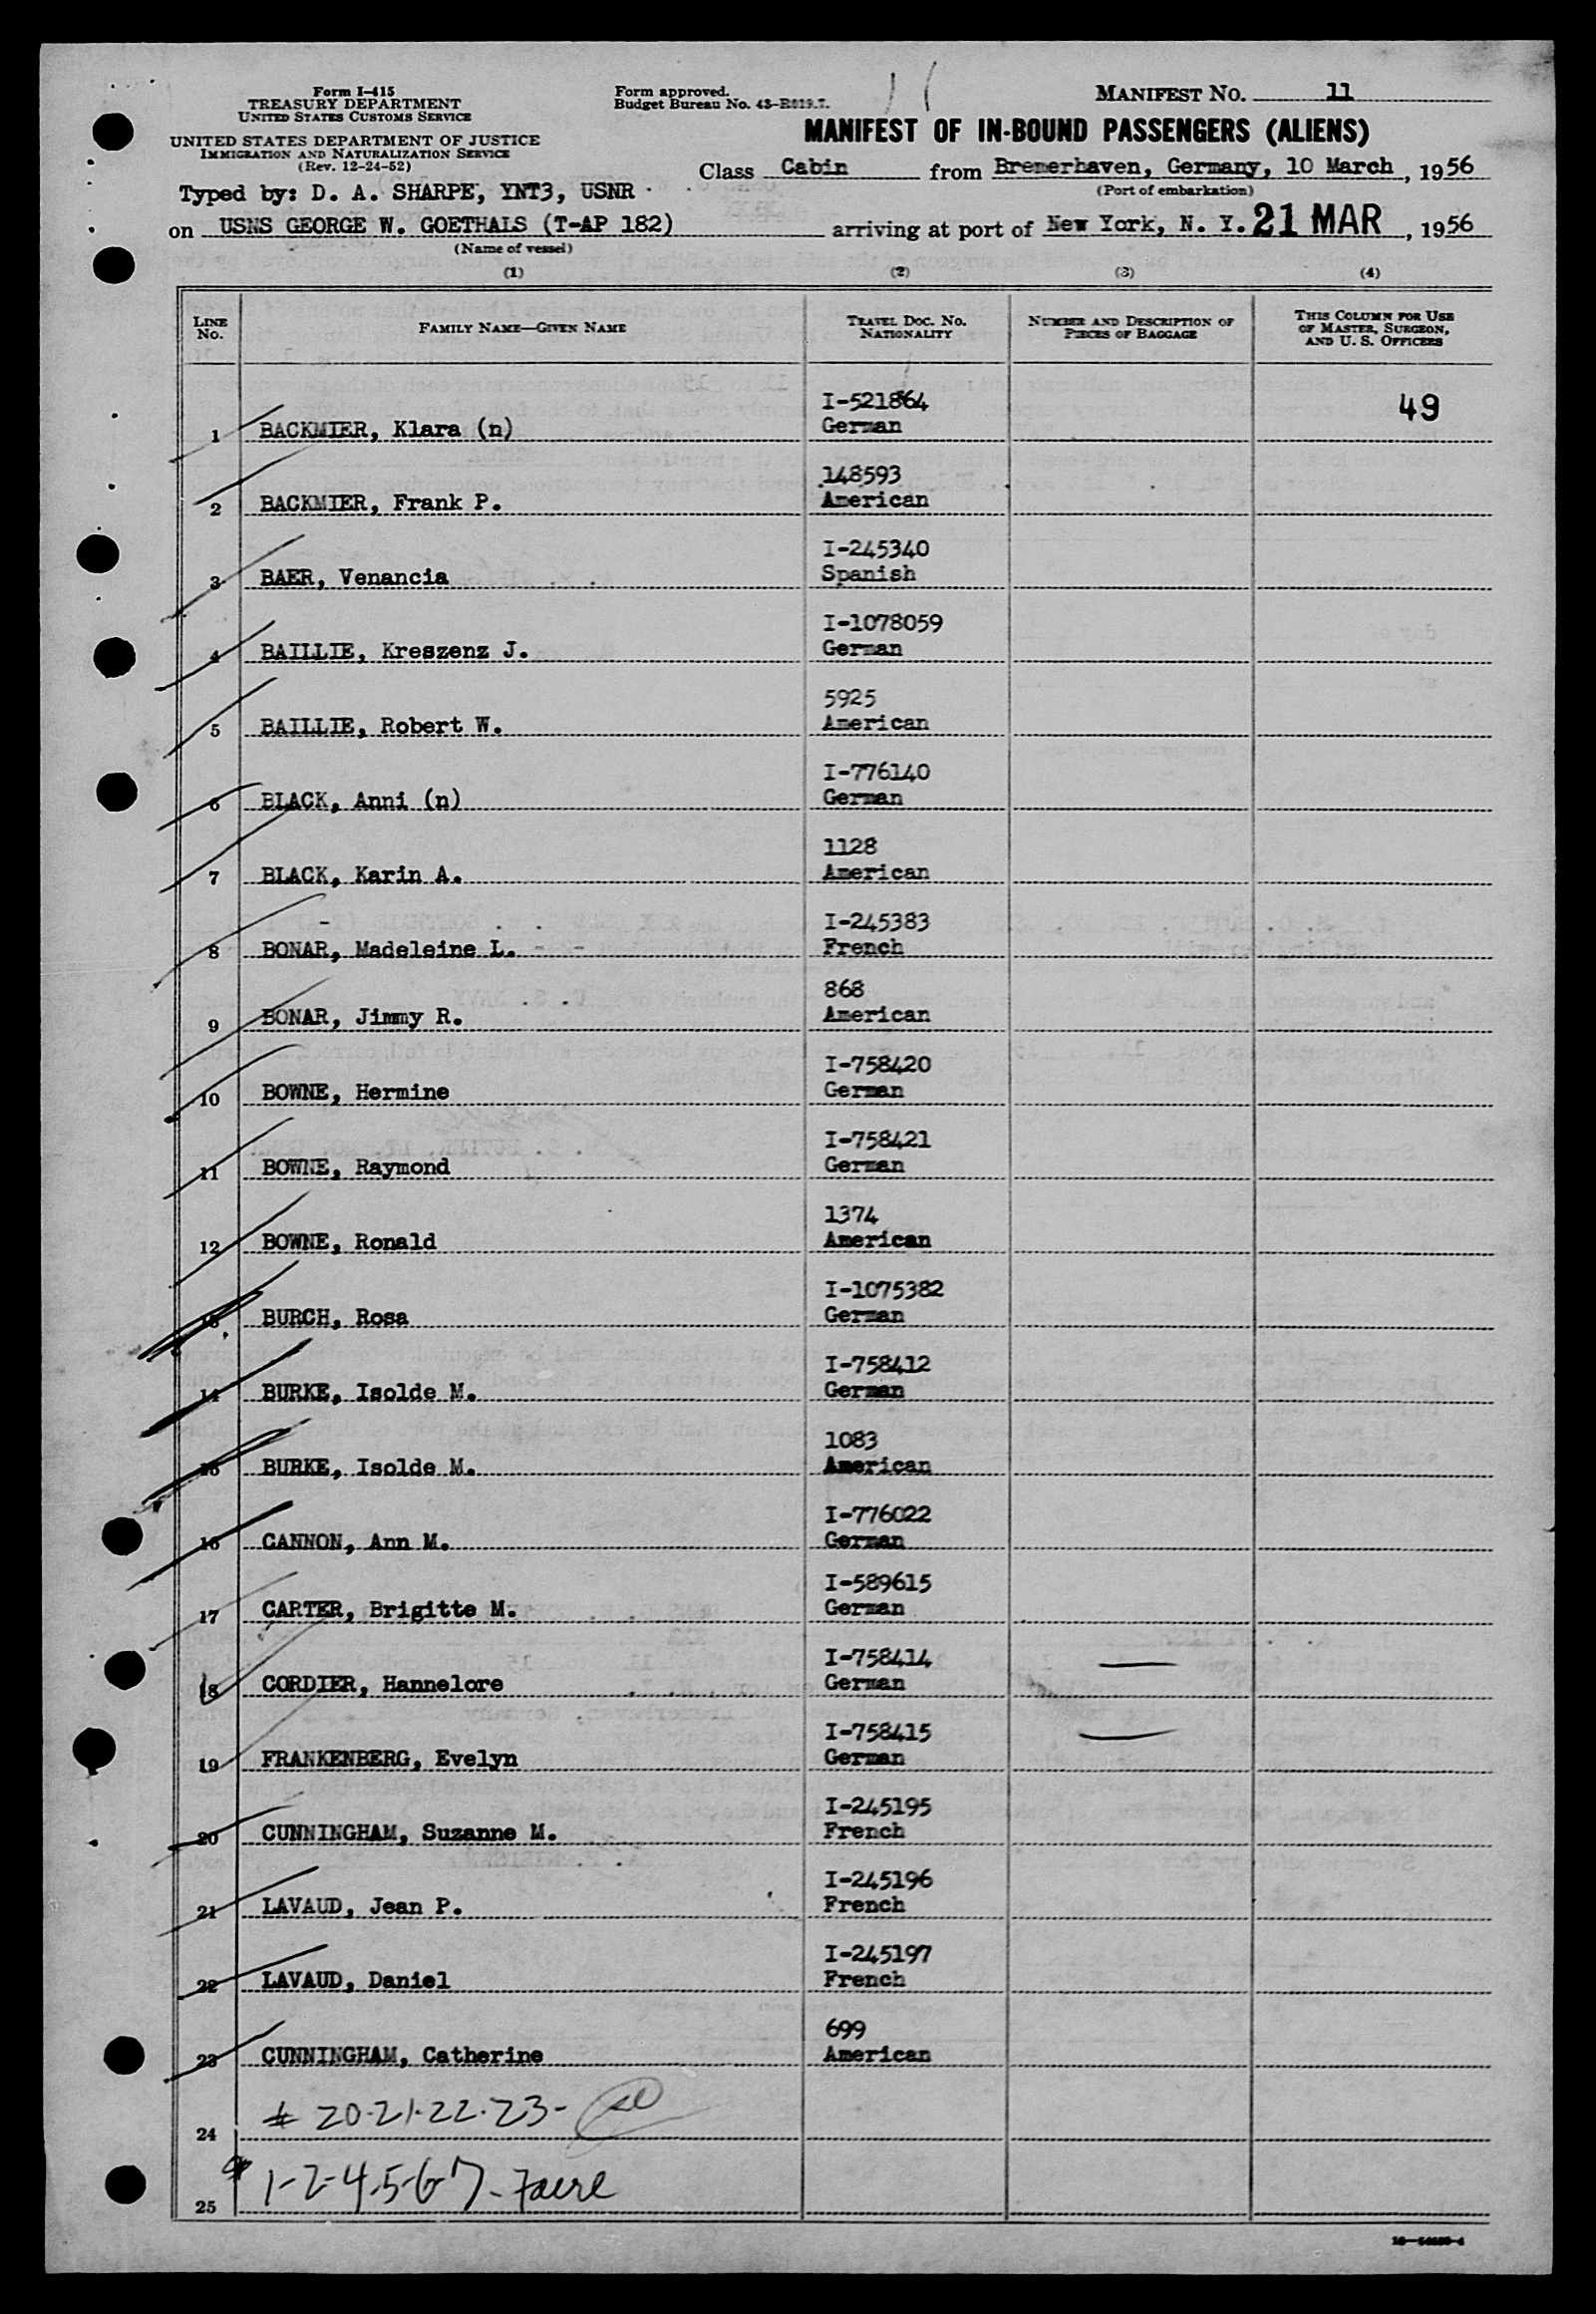 Form I-415
TREASURY DEPARTMENT
UNITED STATES CUSTOMS SERVICE
UNITED STATES DEPARTMENT OF JUSTICE
IMMIGRATION AND NATURALIZATION SERVICE
(Rev. 12-24-52)
Typed by: D. A. SHARPE, YNT3, USNR
Form approved.
Budget Bureau No. 43-R019.7.
MANIFEST NO. 11
MANIFEST OF IN-BOUND PASSENGERS (ALIENS)
Class Cabin from Bremerhaven, Germany, 10 March, 1956
(Port of embarkation)
on USNS GEORGE W. GOETHALS (T-AP 182) arriving at port of New York, N. Y. 21 MAR, 1956
(Name of vessel)
(1) (2) (3) (4)
LINE NO. FAMILY NAME—GIVEN NAME TRAVEL DOC. NO. NATIONALITY NUMBER AND DESCRIPTION OF PIECES OF BAGGAGE THIS COLUMN FOR USE OF MASTER, SURGEON, AND U. S. OFFICERS
I-521864 49
1 BACKMIER, Klara (n) German
148593
2 BACKMIER, Frank P. American
I-245340
3 BAER, Venancia Spanish
I-1078059
4 BAILLIE, Kreszenz J. German
5925
5 BAILLIE, Robert W. American
I-776140
6 BLACK, Anni (n) German
1128
7 BLACK, Karin A. American
I-245383
8 BONAR, Madeleine L. French
868
9 BONAR, Jimmy R. American
I-758420
10 BOWNE, Hermine German
I-758421
11 BOWNE, Raymond German
1374
12 BOWNE, Ronald American
I-1075382
13 BURCH, Rosa German
I-758412
14 BURKE, Isolde M. German
1083
15 BURKE, Isolde M. American
I-776022
16 CANNON, Ann M. German
I-589615
17 CARTER, Brigitte M. German
I-758414
18 CORDIER, Hannelore German
I-758415
19 FRANKENBERG, Evelyn German
I-245195
20 CUNNINGHAM, Suzanne M. French
I-245196
21 LAVAUD, Jean P. French
I-245197
22 LAVAUD, Daniel French
699
23 CUNNINGHAM, Catherine American
24 # 20-21-22-23-
25 1-2-4-5-6-7-